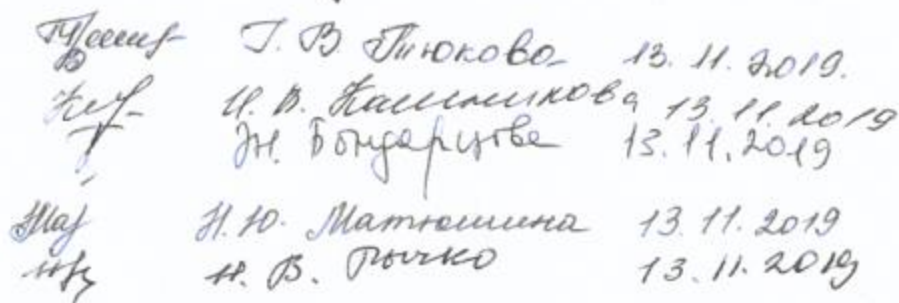 Т. В. Тюкова 13.11.2019.
И. В. 13.11.2019
Ж. Бондарцова 13.11.2019
Н. Ю. Матюшина 13.11.2019
Н. В. Рычко 13.11.2019